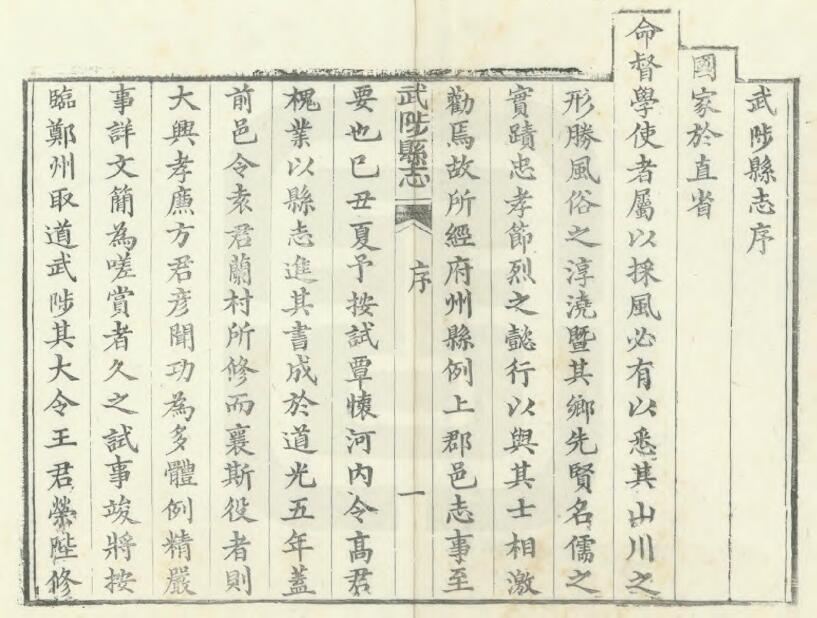 武陟縣志序
國家於直省
命督學使者屬以採風必有以悉其山川之
形勝風俗之淳澆暨其鄉先賢名儒之
實蹟忠孝節烈之懿行以與其士相激
勸焉故所經府州縣例上郡邑志事至
武陟縣志 序 一
要也己丑夏予按試覃懷河內令高君
槐業以縣志進其書成於道光五年蓋
前邑令袁君蘭村所修而襄斯役者則
大興孝廉方君彥聞功為多體例精嚴
事詳文簡為嗟賞者久之試事竣將按
臨鄭州取道武陟其大令王君榮陛修